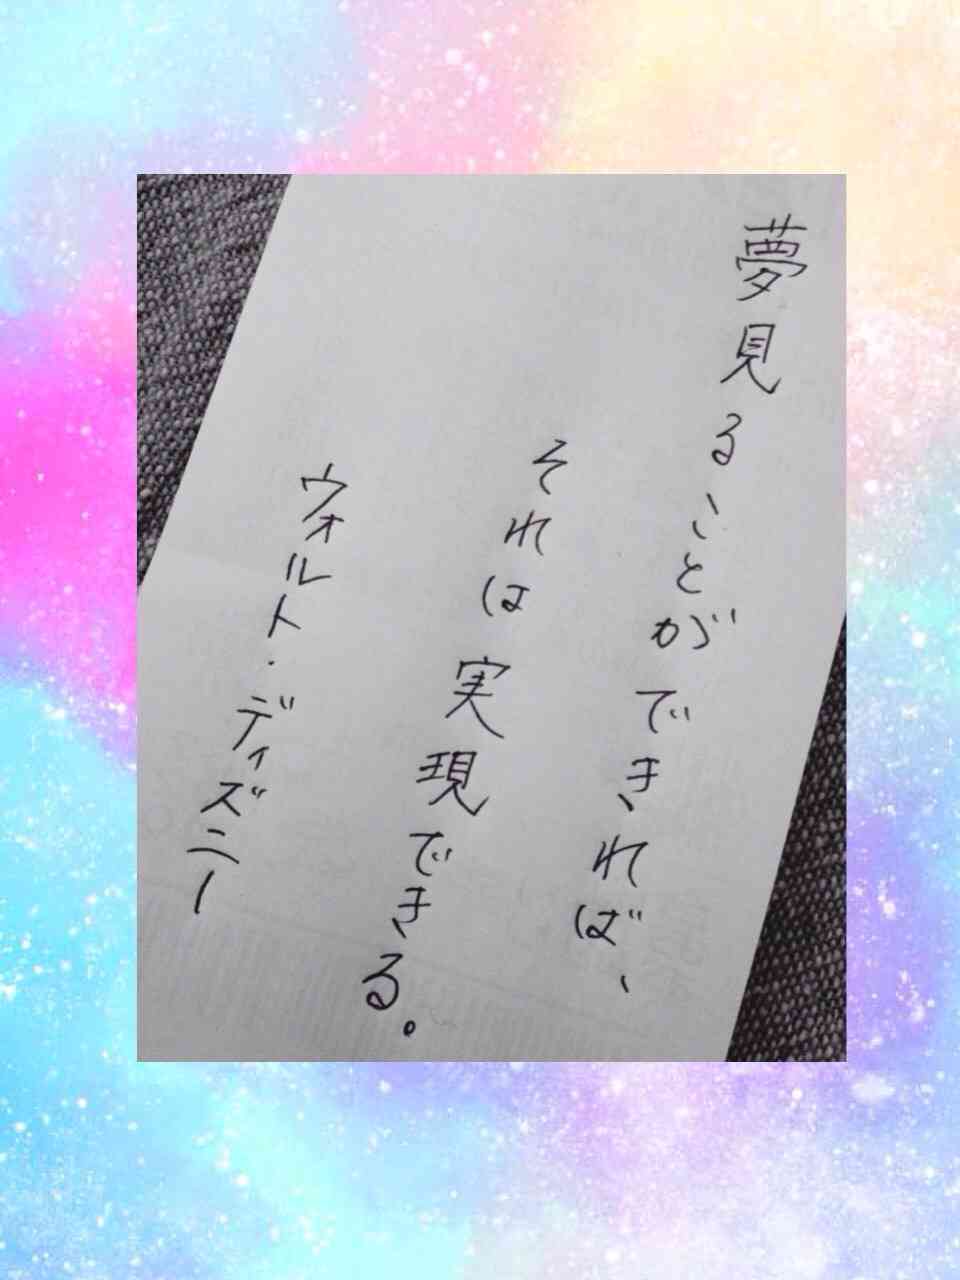 夢見ることができれば、
それは実現できる。
ウォルト・ディズニー